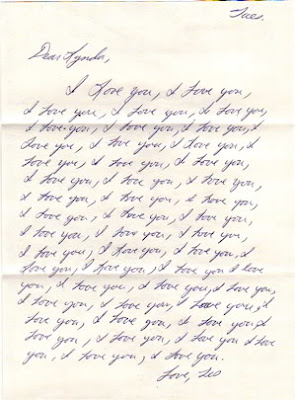 Tues.
Dear Lynda,
I love you, I love you,
I love you, I love you, I love you,
I love you, I love you, I love you, I
love you, I love you, I love you, I
love you, I love you, I love you,
I love you, I love you, I love you,
I love you, I love you, I love you,
I love you, I love you, I love you,
I love you, I love you, I love you,
I love you, I love you, I love you, I
love you, I love you, I love you I love
you, I love you, I love you, I love you,
I love you, I love you, I love you, I
love you, I love you, I love you I
love you, I love you, I love you I love
you, I love you, I love you.
Love, Leo